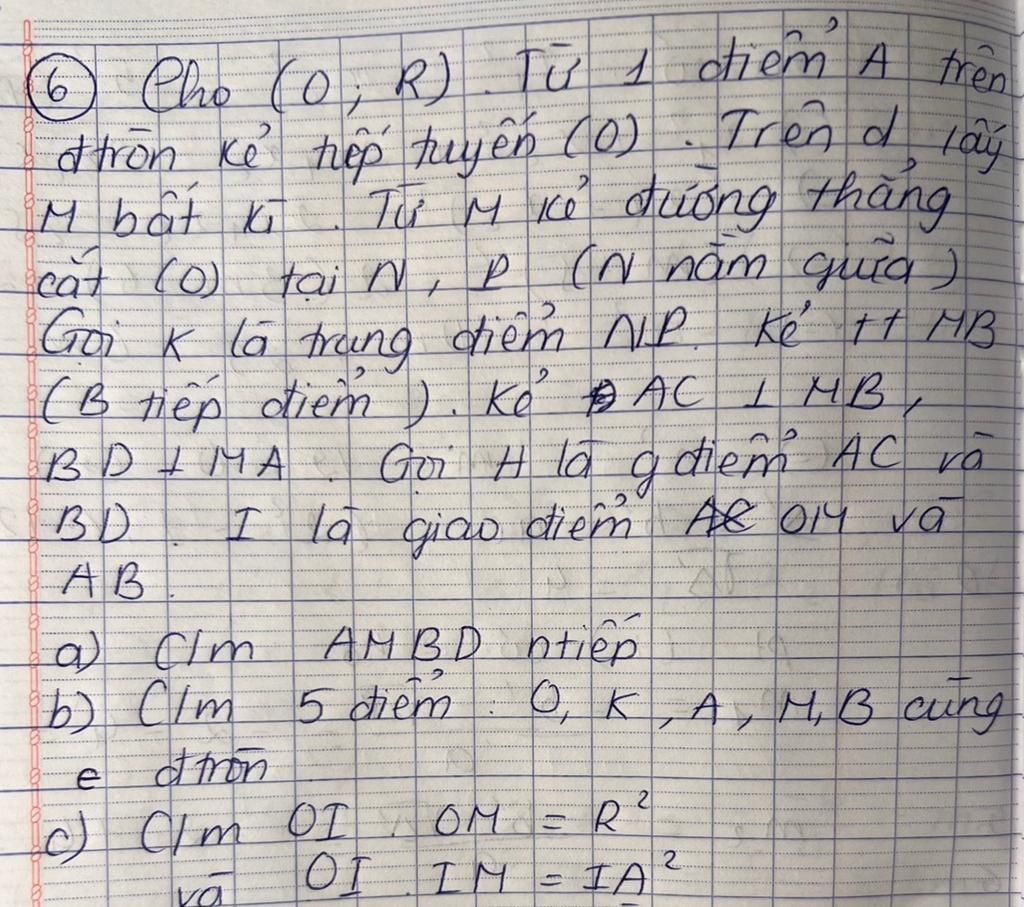 ⑥ Cho (O; R). Từ 1 điểm A trên
đtròn kẻ tiếp tuyến (O). Trên d lấy
M bất kì. Từ M kẻ đường thẳng
cắt (O) tại N, P (N nằm giữa)
Gọi K là trung điểm NP. Kẻ tt MB
(B tiếp điểm). Kẻ AC ⊥ MB,
BD ⊥ MA. Gọi H là gđiểm AC và
BD. I là giao điểm OM và
AB.
a) C/m AMBD ntiếp
b) C/m 5 điểm: O, K, A, M, B cùng
e đtròn
c) C/m OI . OM = R²
và OI . IM = IA²